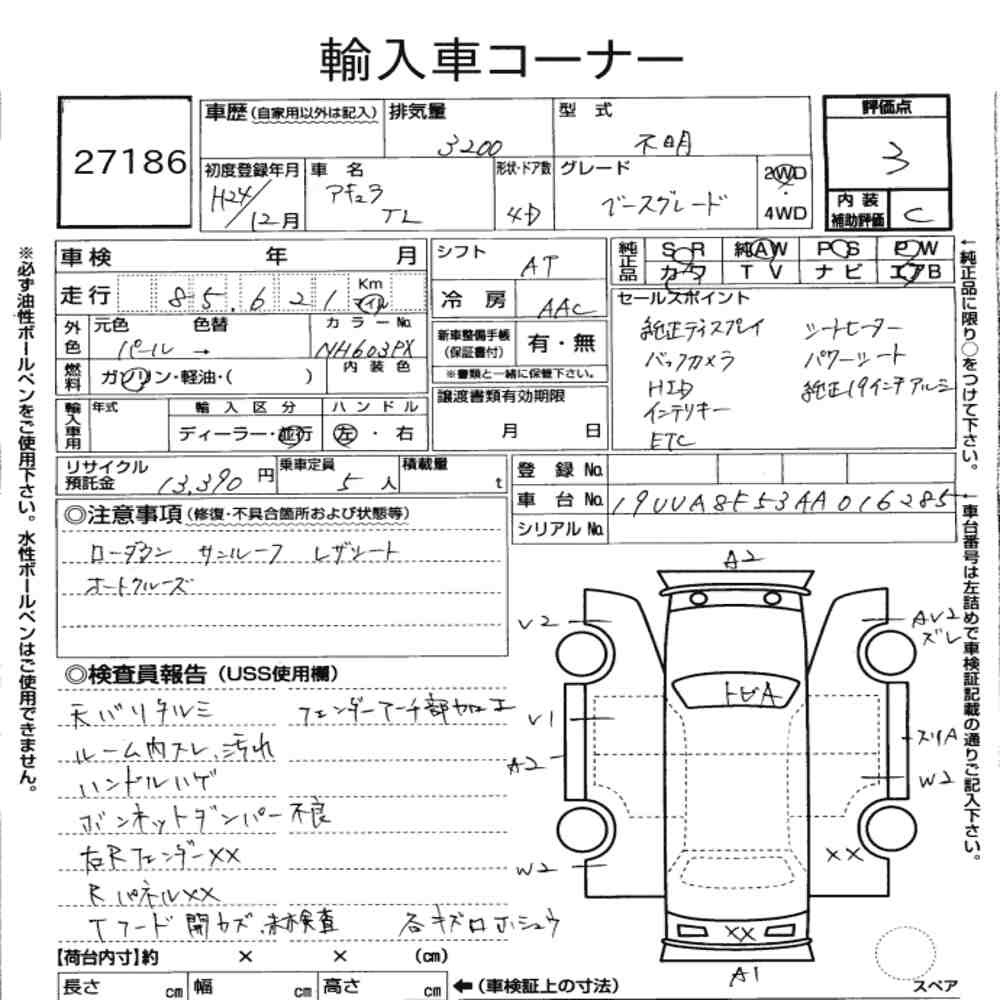 輸入車コーナー
27186
車歴(自家用以外は記入) 排気量 型式 評価点
3200 不明 3
初度登録年月 車名 形状・ドア数 グレード 2WD
H24/12月 アキュラ TL 4D ベースグレード 4WD
内装補助評価 C
車検 年 月 シフト AT
純正品 SR 純AW PS PW
カワ TV ナビ エアB
走行 85.621 Km マイル
冷房 AAC
セールスポイント
純正ディスプレイ シートヒーター
バックカメラ パワーシート
HID 純正19インチアルミ
インテリキー
ETC
外色 元色 色替 カラーNo.
パール → NH603PX
新車整備手帳(保証書付) 有・無
※書類と一緒に保管下さい。
燃料 ガソリン・軽油・( ) 内装色
譲渡書類有効期限
月 日
輸入車用 年式 輸入区分 ハンドル
ディーラー・並行 左・右
リサイクル預託金 13,390円 乗車定員 5人 積載量 t
登録No.
車台No. 19UUA8F53AA016285
シリアルNo.
◎注意事項(修復・不具合箇所および状態等)
ローダウン サンルーフ レザシート
オートクルーズ
◎検査員報告(USS使用欄)
天バリタルミ フェンダーアーチ部加工
ルーム内スレ、汚れ
ハンドルハゲ
ボンネットダンパー不良
右RフェンダーXX
RパネルXX
Tフード開カズ、未検査 各キズロホシュウ
【荷台内寸】約 × × (cm)
長さ cm 幅 cm 高さ cm ←(車検証上の寸法)
A2
V2
AV2
ズレ
トビA
V1
A2
スリA
W2
W2
XX
XX
A1
スペア
※必ず油性ボールペンをご使用下さい。水性ボールペンはご使用できません。
←純正品に限り○をつけて下さい。
←車台番号は左詰めで車検証記載の通りご記入下さい。